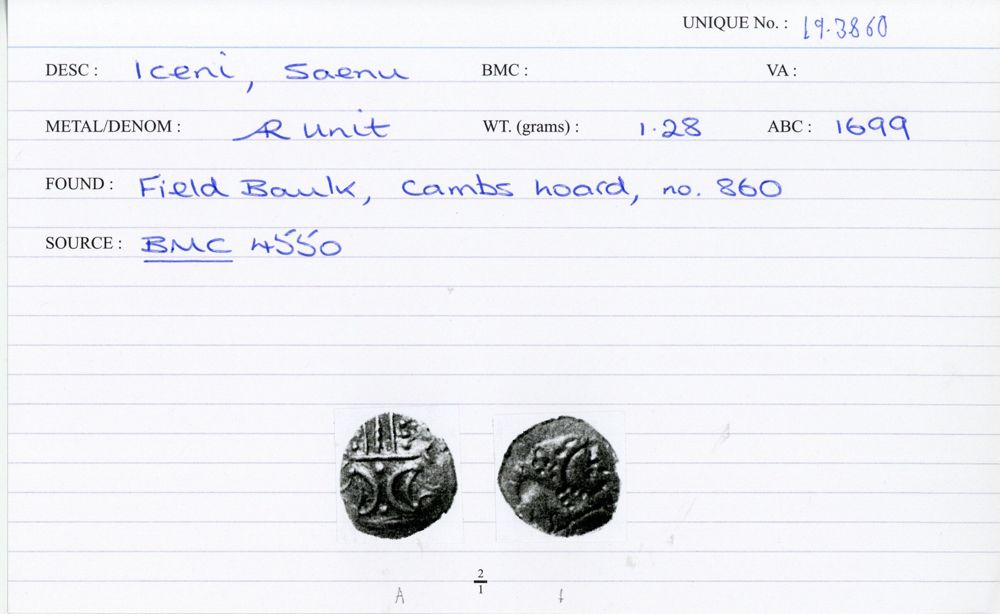 UNIQUE No. : 19.3860
DESC : Iceni, Saenu BMC : VA :
METAL/DENOM : AR Unit WT. (grams) : 1.28 ABC : 1699
FOUND : Field Baulk, Cambs hoard, no. 860
SOURCE : BMC 4550
2
1
A